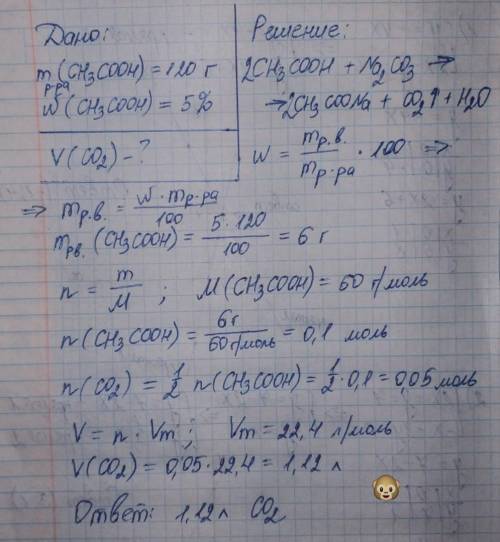 Дано:
m р-ра (CH3COOH) = 120 г
ω (CH3COOH) = 5%
V(CO2) - ?
Решение:
2CH3COOH + Na2CO3 →
→ 2CH3COONa + CO2↑ + H2O
ω = mр.в. / mр-ра · 100 ⇒
⇒ mр.в. = ω · mр-ра / 100
mр.в. (CH3COOH) = 5 · 120 / 100 = 6 г
n = m / M ; M(CH3COOH) = 60 г/моль
n(CH3COOH) = 6г / 60 г/моль = 0,1 моль
n(CO2) = 1/2 n(CH3COOH) = 1/2 · 0,1 = 0,05 моль
V = n · Vm ; Vm = 22,4 л/моль
V(CO2) = 0,05 · 22,4 = 1,12 л
Ответ: 1,12 л CO2